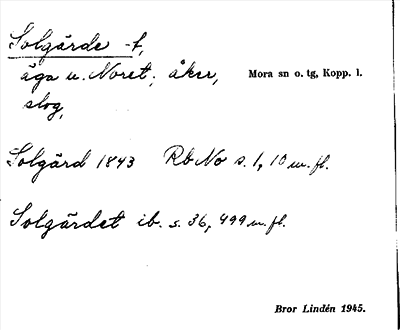 Solgärde -t,
äga u. Noret; åker, Mora sn o. tg, Kopp. l.
slog,
Solgärd 1843 Rb No s. 1, 10 m. fl.
Solgärdet ib. s. 36, 499 m. fl.
Bror Lindén 1945.